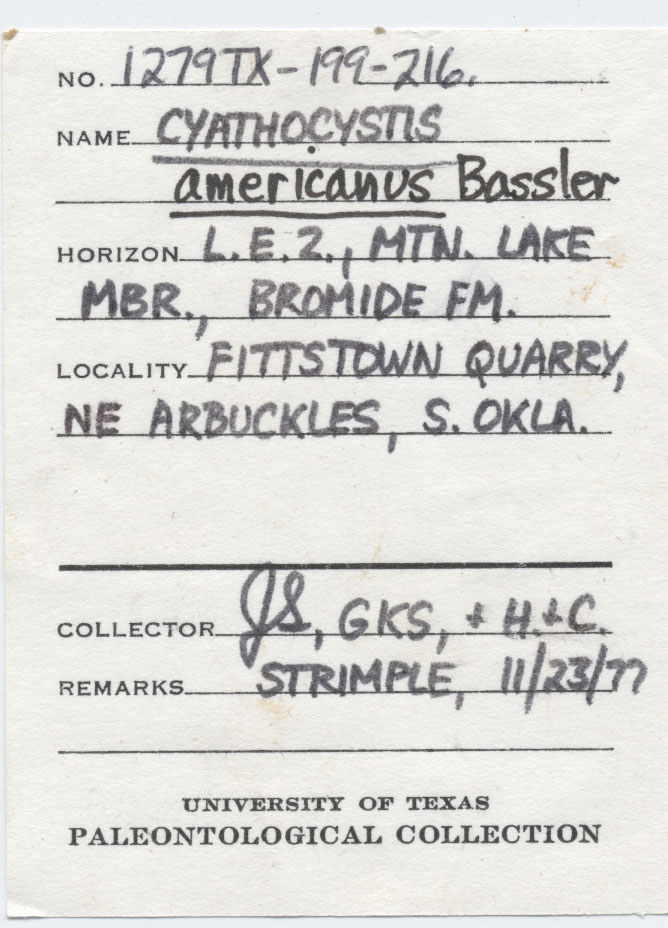 NO. 1279TX-199-216.
NAME CYATHOCYSTIS
americanus Bassler
HORIZON L.E.2., MTN. LAKE
MBR., BROMIDE FM.
LOCALITY FITTSTOWN QUARRY,
NE ARBUCKLES, S. OKLA.
COLLECTOR JS, GKS, + H.+C.
REMARKS STRIMPLE, 11/23/77
UNIVERSITY OF TEXAS
PALEONTOLOGICAL COLLECTION